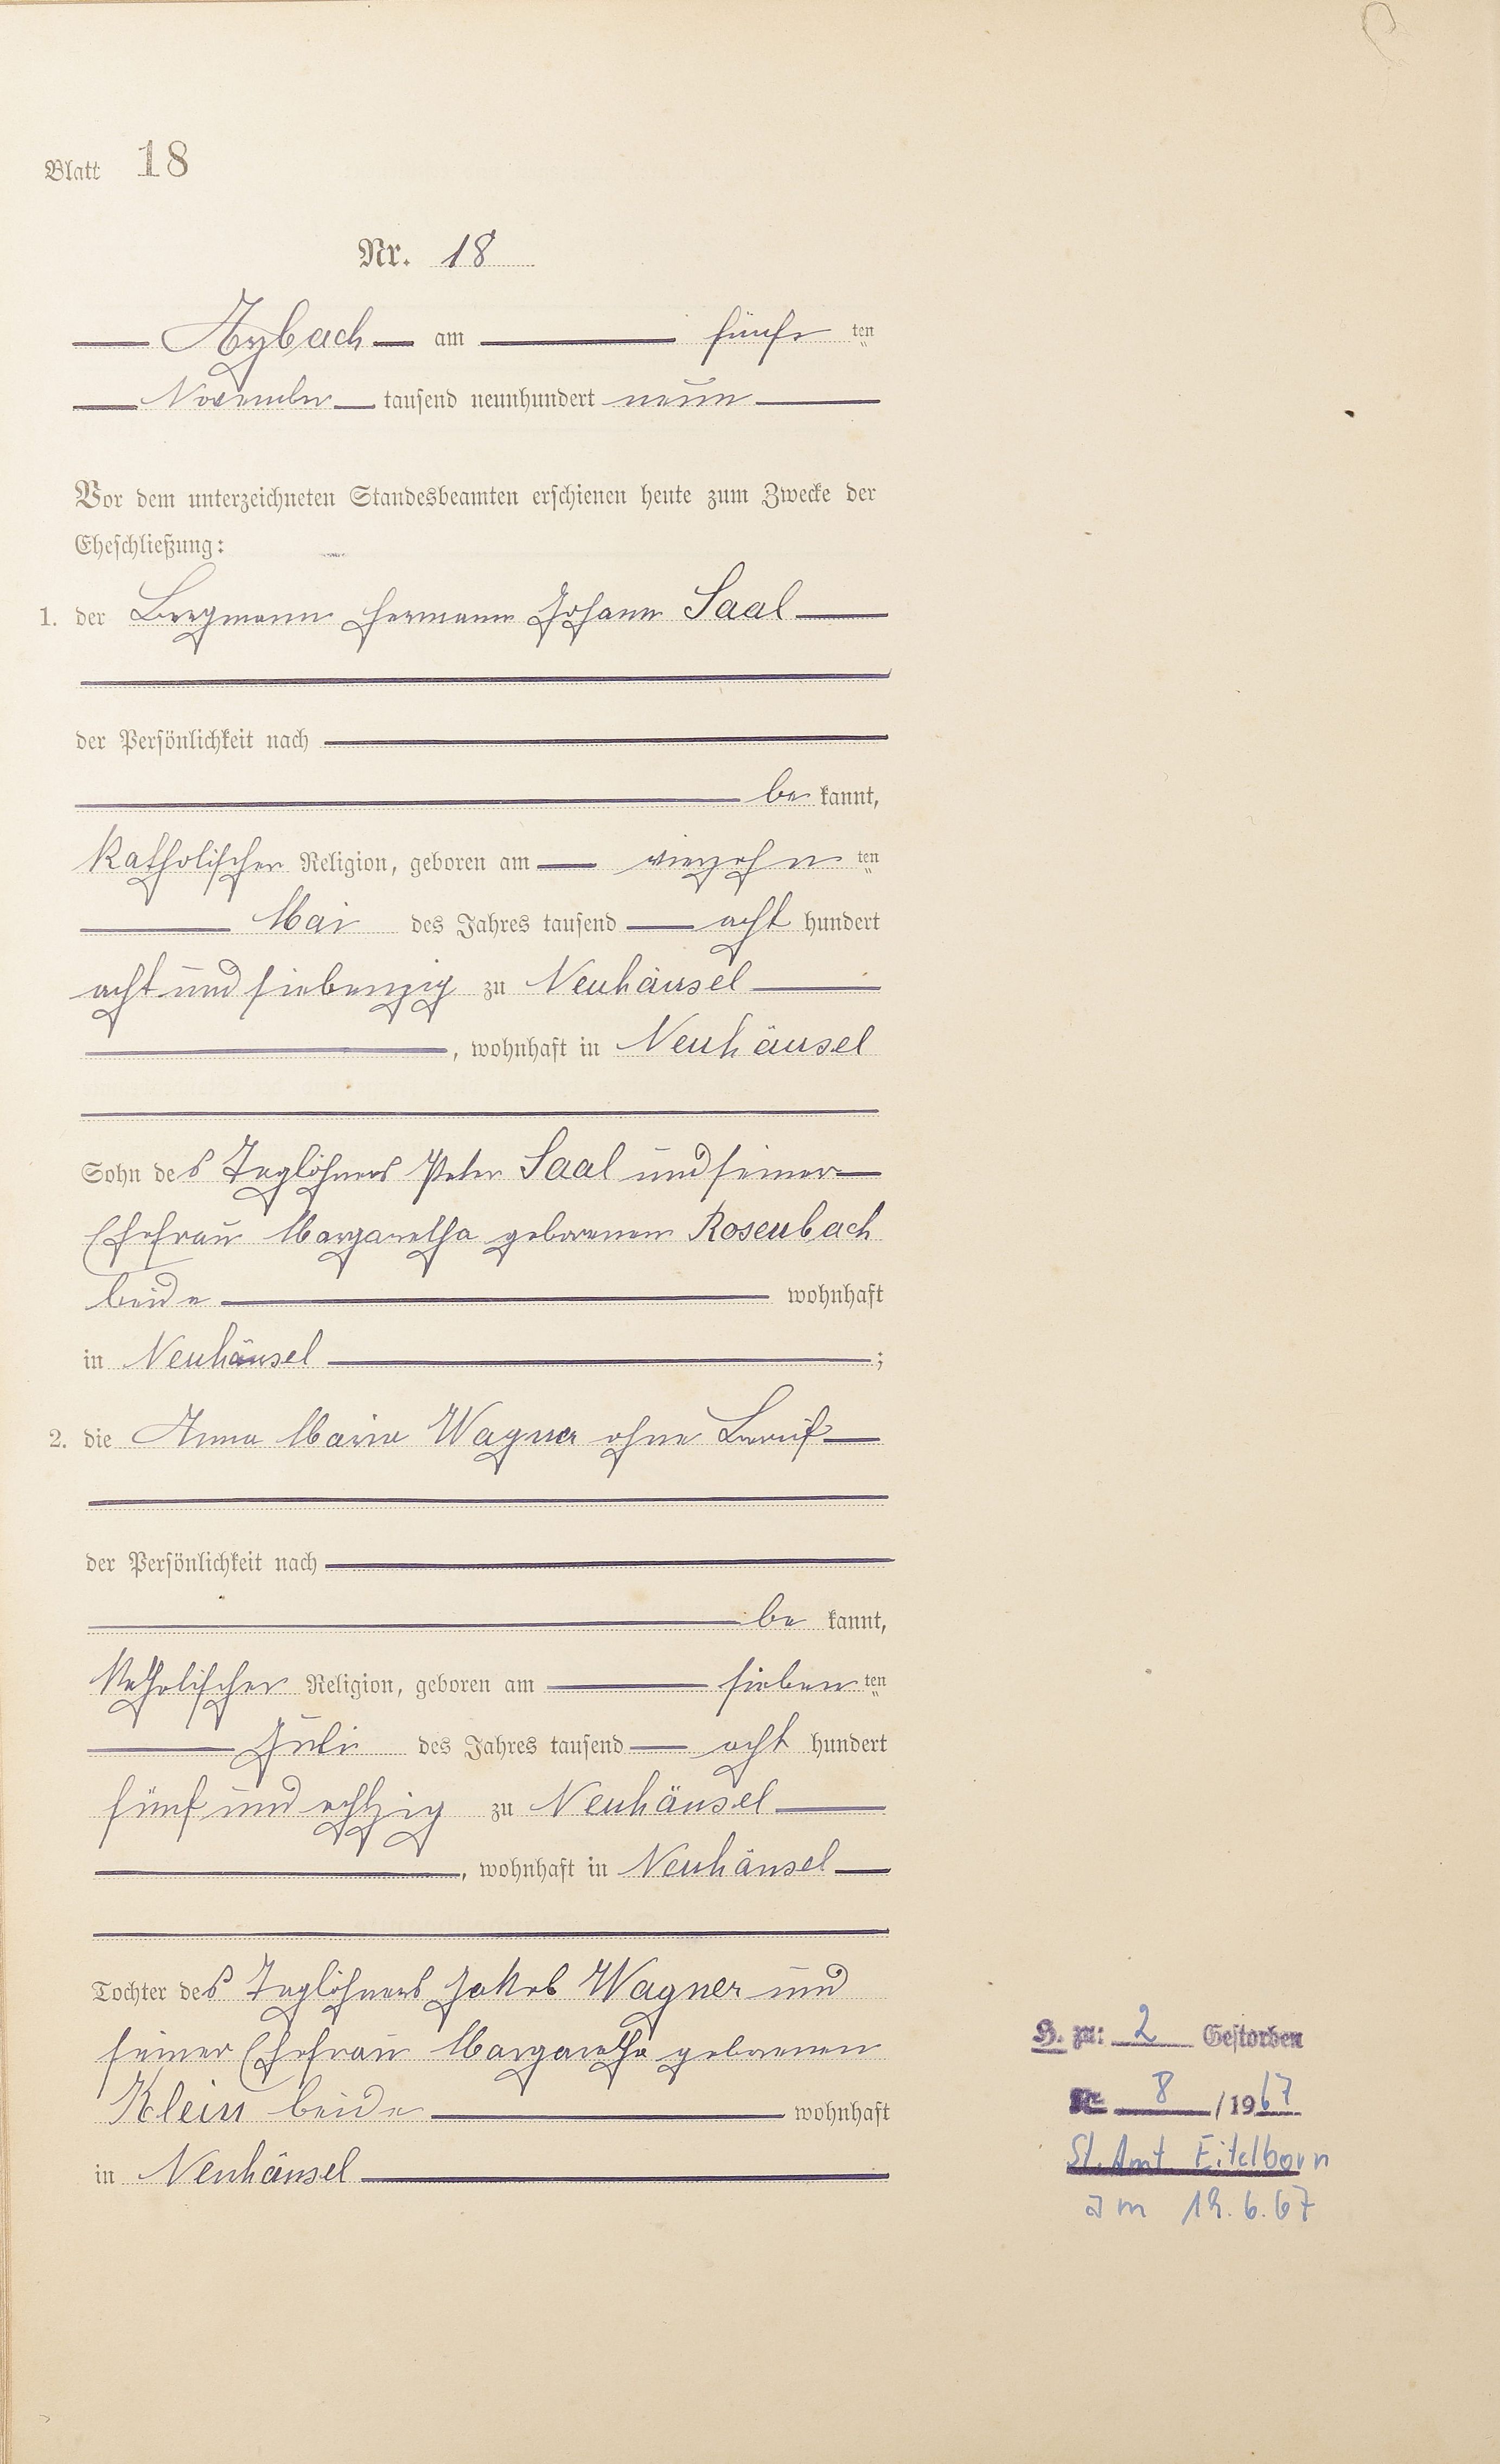 Blatt 18
Nr. 18
Arzbach am fünf ten
November tausend neunhundert neun
Vor dem unterzeichneten Standesbeamten erschienen heute zum Zwecke der
Eheschließung:
1. der Bergmann Hermann Johann Saal
der Persönlichkeit nach
be kannt,
katholischer Religion, geboren am vierzehn ten
Mai des Jahres tausend acht hundert
acht und siebenzig zu Neuhäusel
, wohnhaft in Neuhäusel
Sohn des Taglöhners Peter Saal und seiner
Ehefrau Margaretha geborenen Rosenbach
beide wohnhaft
in Neuhäusel ;
2. die Anna Maria Wagner ohne Beruf
der Persönlichkeit nach
be kannt,
katholischer Religion, geboren am sieben ten
Juli des Jahres tausend acht hundert
fünf und achtzig zu Neuhäusel
, wohnhaft in Neuhäusel
Tochter des Taglöhners Jakob Wagner und
seiner Ehefrau Margaretha geborenen
Klein beide wohnhaft
in Neuhäusel
H. zu: 2 Gestorben
Nr. 8 /1967
St. Amt Eitelborn
am 19.6.67